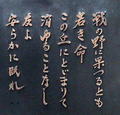 戦の野に果つるとも
若き命
この丘にとじまりて
消ゆることなし
友よ
安らかに眠れ